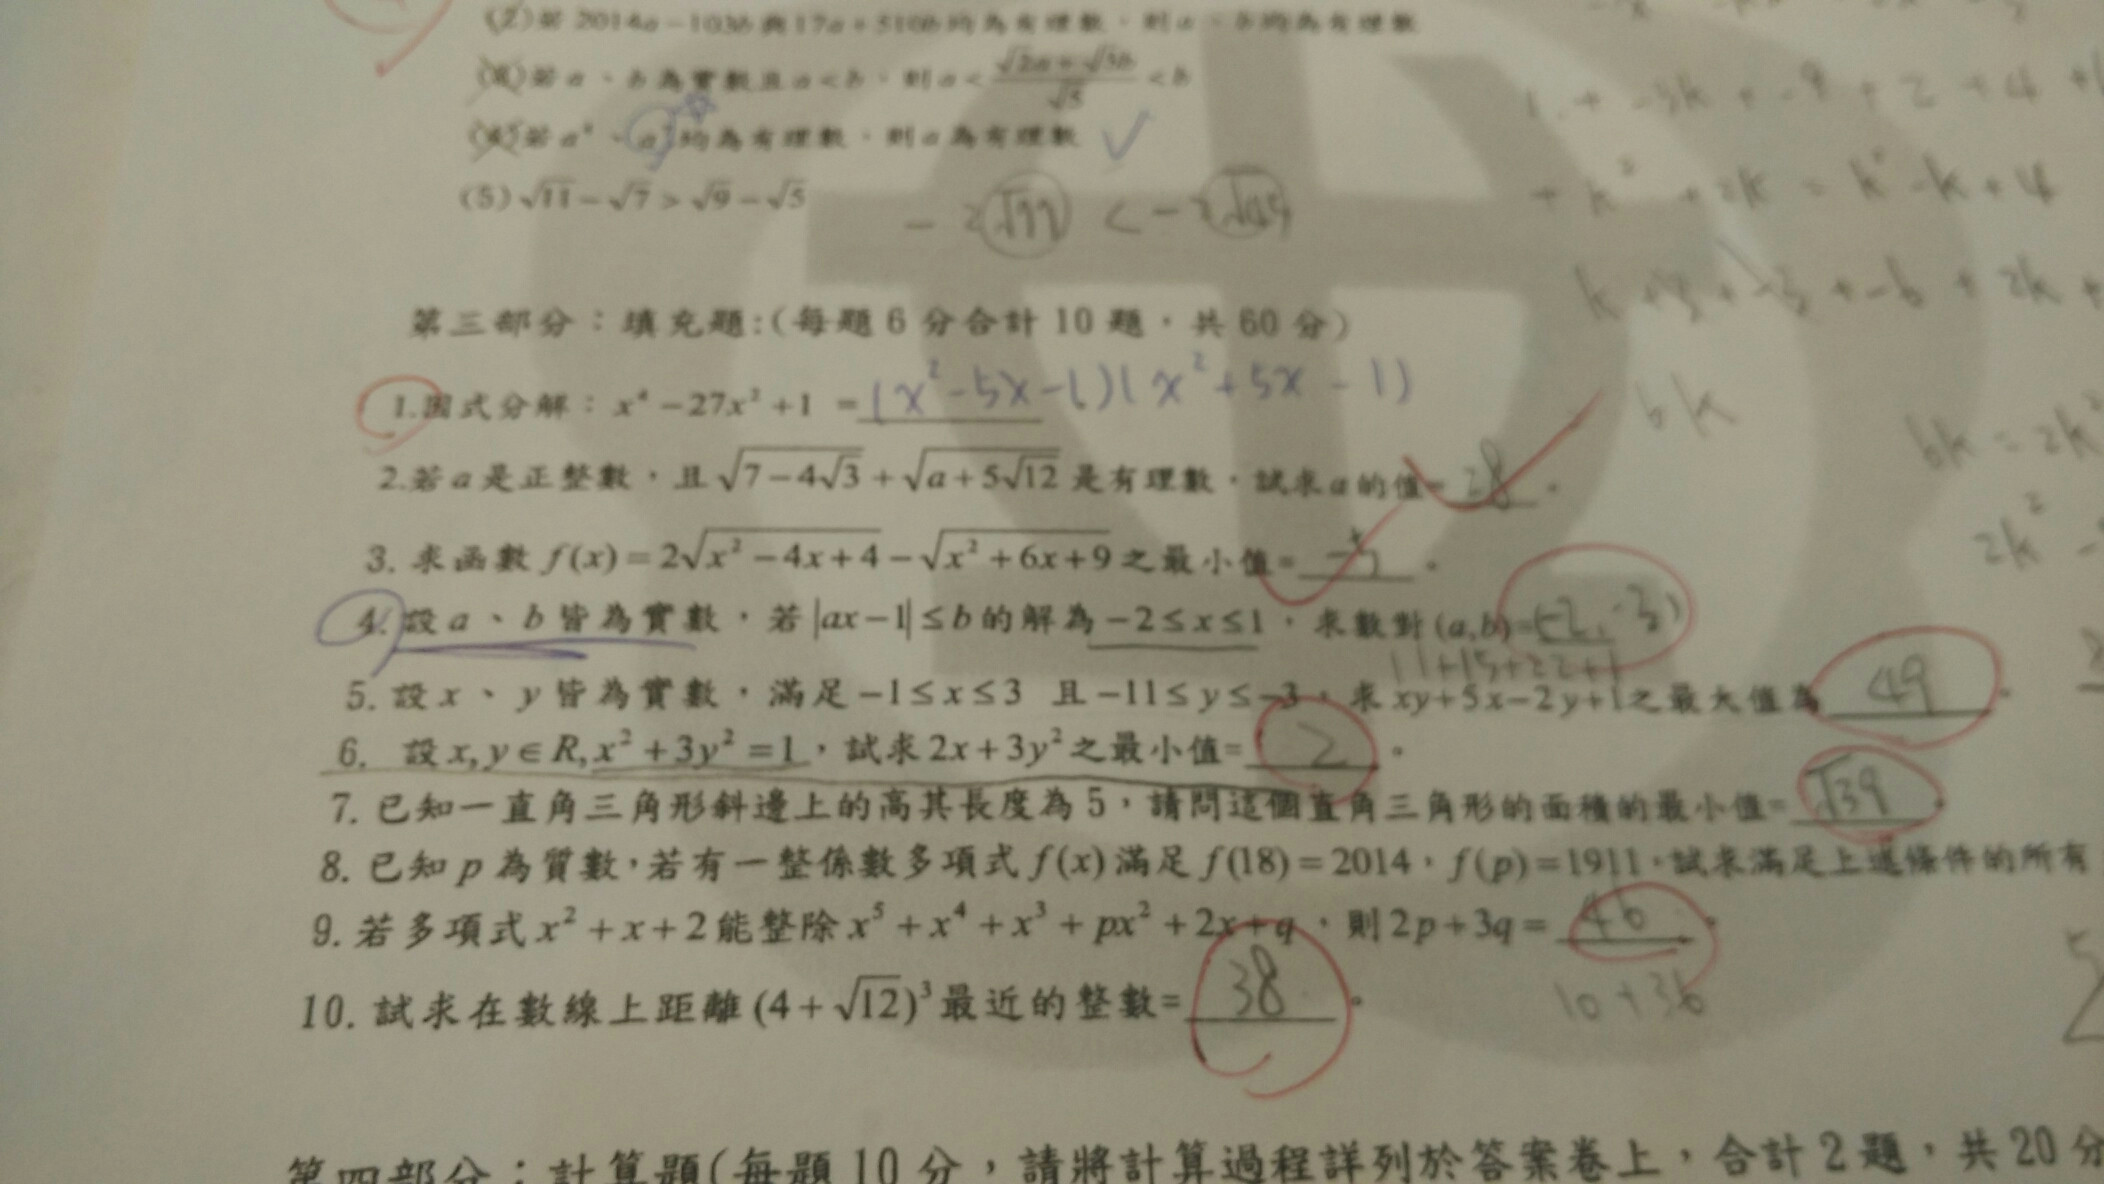 (2)若 2014a－103b 與 17a＋510b 均為有理數，則 a、b 均為有理數
若 a、b 為實數且 a<b，則 a< (√2a+√3b)/√5 <b
(4)若 a⁴、a 均為有理數，則 a 為有理數 ✓
(5) √11－√7 > √9－√5
－2√77 < －2√45
第三部分：填充題:(每題 6 分合計 10 題，共 60 分)
1.因式分解：x⁴－27x²＋1 = (x²-5x-1)(x²+5x-1)
2.若 a 是正整數，且 √(7－4√3)＋√(a＋5√12) 是有理數，試求 a 的值= 28 。
3. 求函數 f(x)＝2√(x²－4x＋4)－√(x²＋6x＋9) 之最小值= -5 。
4. 設 a、b 皆為實數，若 |ax－1|≤b 的解為 －2≤x≤1，求數對 (a,b)= (-2, -3)
11+15+22+1
5. 設 x、y 皆為實數，滿足 －1≤x≤3 且 －11≤y≤－3，求 xy＋5x－2y＋1 之最大值為 49 。
6. 設 x, y∈R, x²＋3y²＝1，試求 2x＋3y² 之最小值= 2 。
7. 已知一直角三角形斜邊上的高其長度為 5，請問這個直角三角形的面積的最小值= √39 。
8. 已知 p 為質數，若有一整係數多項式 f(x) 滿足 f(18)＝2014，f(p)＝1911，試求滿足上述條件的所有
9. 若多項式 x²＋x＋2 能整除 x⁵＋x⁴＋x³＋px²＋2x＋q，則 2p＋3q＝ 46 。
10+36
10. 試求在數線上距離 (4＋√12)³ 最近的整數= 38 。
第四部分：計算題(每題 10 分，請將計算過程詳列於答案卷上，合計 2 題，共 20 分
1 + -3k + -9 + 2 + 4
+ k² + 2k = k² - k + 4
6k
6k = 2k²
2k² -